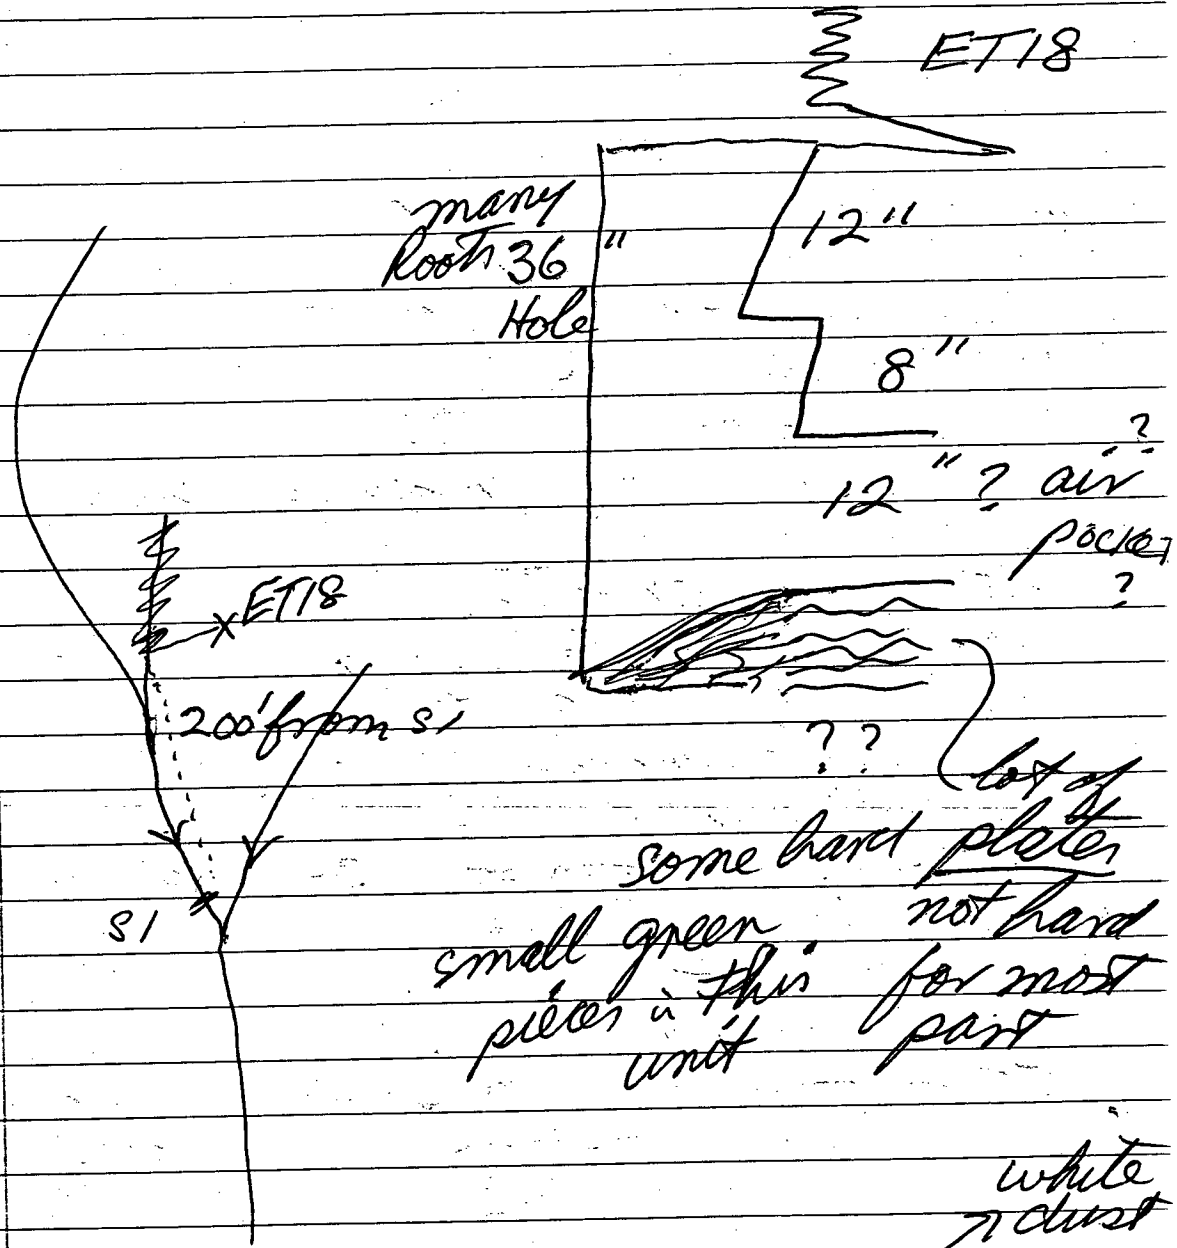 ET18
many
Roots 36"
Hole
12"
8"
12"? air ?
pocket
?
ET18
200' from S1
S1
??
lot of
plates
not hard
for most
part
some hard
small green
pieces in this
unit
white
dust